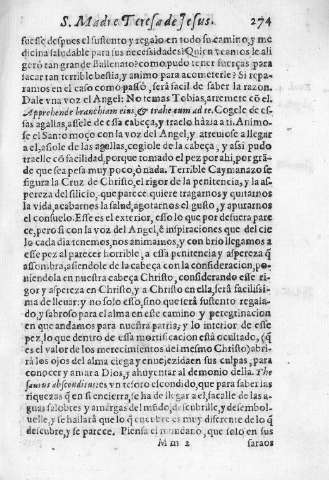 S. Madre Teresa de Iesus. 274
fuesse despues el sustento y regalo en todo su camino, y me
dicina saludable para sus necessidades? Quien veamos le ali
gerò tan grande Ballenato? como pudo tener fuerças para
sacar tan terrible bestia, y animo para acometerle? Si repa-
ramos en el caso como passò, serà facil de saber la razon.
Dale vna voz el Angel: No temas Tobias, arremete cõ el.
Apprehende branchiam eius, & trahe eum ad te. Cogele de es-
sas agallas, assele de essa cabeça, y traelo hàzia a ti. Animo-
se el Santo moço con la voz del Angel, y atreuiose a llegar
a el, asiole de las agallas, cogiole de la cabeça, y assi pudo
traelle cõ facilidad, porque tomado el pez por ahi, por grã-
de que sea pesa muy poco, ò nada. Terrible Caymanazo se
figura la Cruz de Christo, el rigor de la penitencia, y la as-
pereza del silicio, que parece quiere tragarnos y quitarnos
la vida, acabarnos la salud, agotarnos el gusto, y apurarnos
el consuelo. Esse es el exterior, esso lo que por defuera pare
ce, pero si con la voz del Angel, è inspiraciones que del cie
lo cada dia tenemos, nos animamos, y con brio llegamos a
esse pez al parecer horrible, a essa penitencia y aspereza q̃
assombra, asiendole de la cabeça con la consideracion, po-
niendola en nuestra cabeça Christo, considerando esse ri-
gor y aspereza en Christo, y a Christo en ella, serà facilissi-
ma de lleuar: y no solo esso, sino que serà sustento regala-
do, y sabroso para el alma en esse camino y peregrinacion
en que andamos para nuestra patria; y lo interior de esse
pez, lo que dentro de essa mortificacion està ocultado, (q̃
es el valor de los merecimientos del mesmo Christo) abri
rà los ojos del alma ciega y enuegezida en sus culpas, para
conocer y amar a Dios, y ahuyentar al demonio della. The
saurus absconditus: es vn tesoro escondido, que para saber las
riquezas q̃ en si encierra, se ha de llegar a el, sacalle de las a-
guas salobres y amargas del mũdo, descubrille, y desembol-
uelle, y se hallarà que lo q̃ encubre es muy diferente de lo q̃
descubre, y se parece. Piensa el mundano, que solo en sus
M m 2 saraos